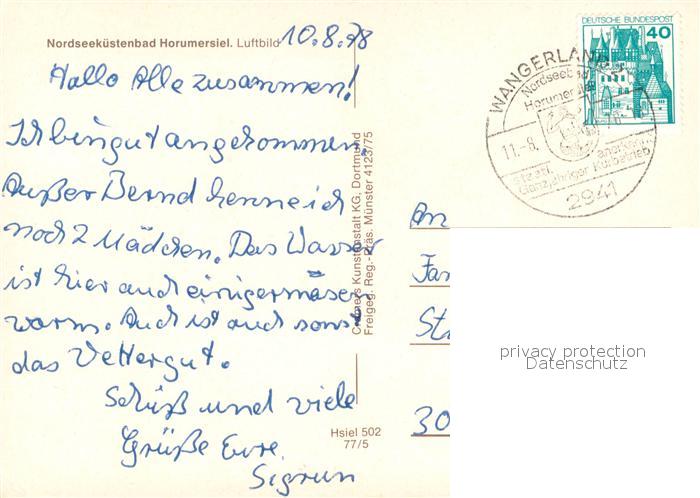 Nordseeküstenbad Horumersiel. Luftbild
10.8.78
Hallo Alle zusammen!
Ich bin gut angekommen.
Außer Bernd kenne ich
noch 2 Mädchen. Das Wasser
ist hier auch einigermäsen
warm. Auch ist auch sonst
das Wetter gut.
Schüß und viele
Grüße Eure
Sigrun
Cramers Kunstanstalt KG, Dortmund
Freigeg. Reg.-Präs. Münster 4123/75
Hsiel 502
77/5
DEUTSCHE BUNDESPOST
40
WANGERLAND
Nordseebad
Horumersiel
11.-8.
staatl.
anerkannt
Ganzjähriger Kurbetrieb
2941
An
Fam
St
30
privacy protection
Datenschutz